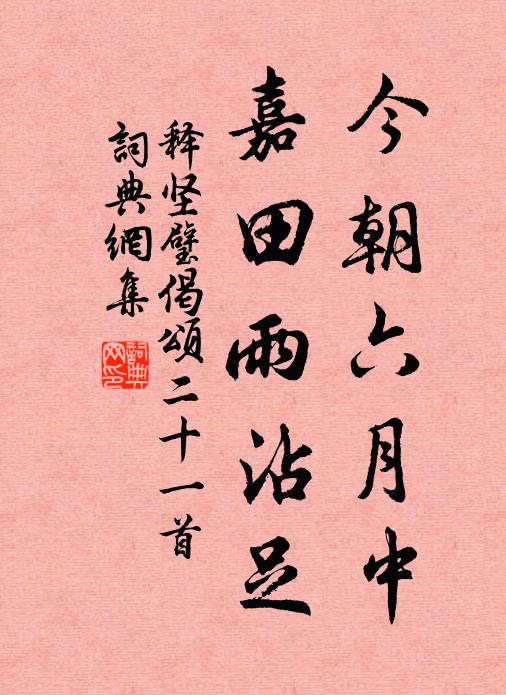 今朝六月中
嘉田雨沾足
释坚璧偈頌二十一首
詞典網集
詞典网印